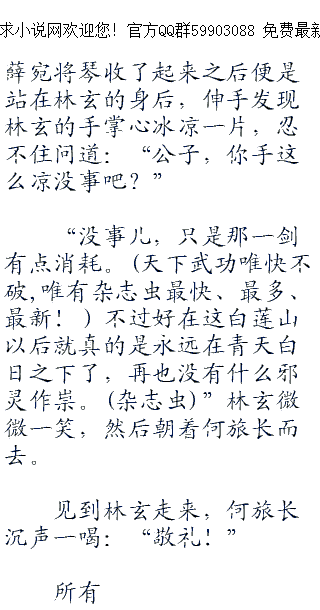 求小说网欢迎您！官方QQ群59903088 免费最新
薛宛将琴收了起来之后便是
站在林玄的身后，伸手发现
林玄的手掌心冰凉一片，忍
不住问道：“公子，你手这
么凉没事吧？”
“没事儿，只是那一剑
有点消耗。(天下武功唯快不
破,唯有杂志虫最快、最多、
最新！)不过好在这白莲山
以后就真的是永远在青天白
日之下了，再也没有什么邪
灵作祟。(杂志虫)”林玄微
微一笑，然后朝着何旅长而
去。
见到林玄走来，何旅长
沉声一喝：“敬礼！”
所有